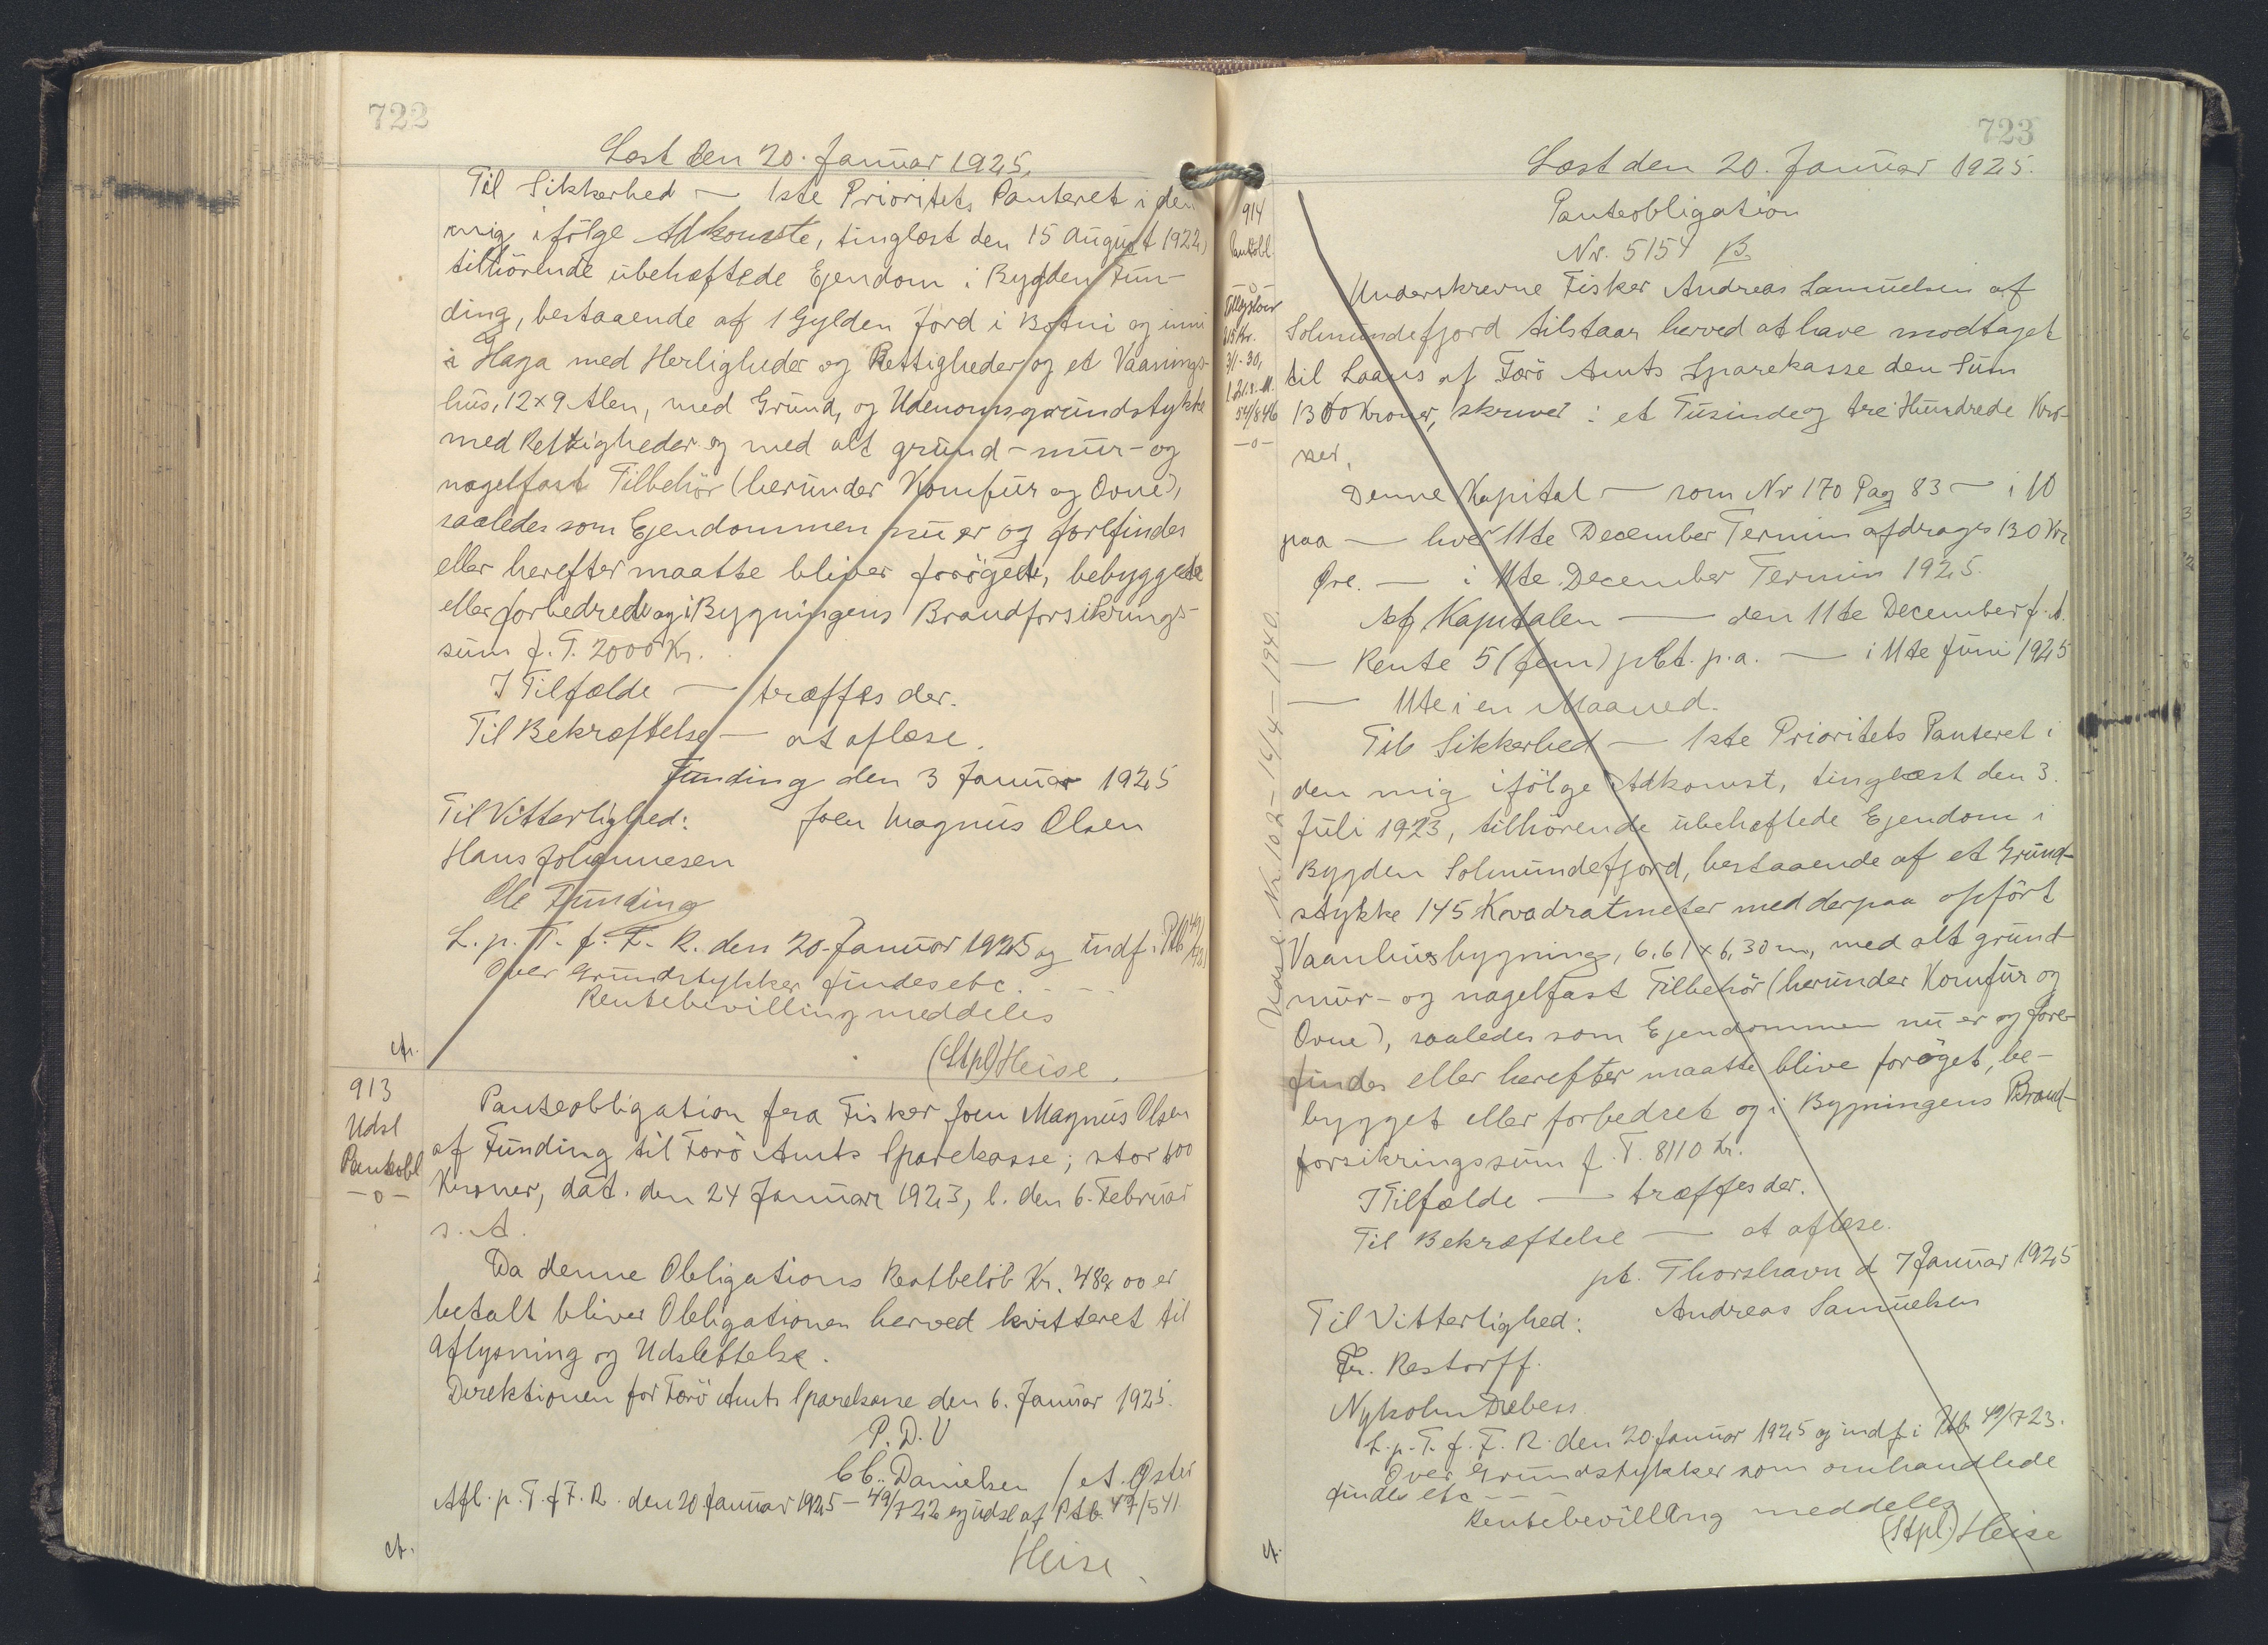 722
Læst den 20. Januar 1925.
Til Sikkerhed — 1ste Prioritets Panteret i den
mig ifölge Adkomste, tinglæst den 15 August 1922,
tilhörende ubehæftede Ejendom i Bygden Fun-
ding, bestaaende af 1 Gylden Jord i Botni og inni
i Haga med Herligheder og Rettigheder og et Vaanings-
hus, 12 x 9 Alen, med Grund, og Udenomsgrundstykke
med Rettigheder og med alt grund- mur- og
nagelfast Tilbehör (herunder Komfur og Ovne),
saaledes som Ejendommen nu er og forefindes
eller herefter maatte bliver forögede, bebyggede
eller forbedrede og i Bygningens Brandforsikrings-
sum f. T. 2000 Kr.
I Tilfælde — træffes der.
Til Bekræftelse — at aflæse.
Funding den 3 Januar 1925
Til Vitterlighed: Joen Magnus Olsen
Hans Johannesen
Ole Funding
L. p. T. f. F. R. den 20. Januar 1925 og indf. i Ptb 49/721
Over Grundstykker findes etc. - - -
Rentebevilling meddeles
(Stpl) Heise.
913
Udsl
Panteobl
—o—
Panteobligation fra Fisker Joen Magnus Olsen
af Funding til Færö Amts Sparekasse; stor 600
Kroner, dat. den 24 Januar 1923, l. den 6. Februar
s. A.
Da denne Obligations Restbelöb Kr. 484 00 er
betalt bliver Obligationen herved kvitteret til
Aflysning og Udslettelse.
Direktionen for Færö Amts Sparekasse den 6. Januar 1925.
P. D. V
C C. Danielsen / A. Øster
Afl. p. T. f F. R. den 20 Januar 1925 — 49/722 og udsl af Ptb. 47/541
Heise.
723
Læst den 20. Januar 1925.
914
Panteobl.
—o—
Panteobligation
Nr. 5154 B.
Underskrevne Fisker Andreas Samuelsen af
Solmundefjord tilstaar herved at have modtaget
til Laans af Færö Amts Sparekasse den Sum
1300 Kroner, skriver: et Tusinde og tre Hundrede Kro-
ner.
Denne Kapital — som Nr 170 Pag 83 — i 10
paa — hver 11te December Termin afdrages 130 Kr
Øre. — i 11te December Termin 1925.
Af Kapitalen — den 11te December f. A.
— Rente 5 (fem) pCt. p. a. — i 11te Juni 1925
— 11te i en Maaned.
Til Sikkerhed — 1ste Prioritets Panteret i
den mig ifölge Adkomst, tinglæst den 3.
Juli 1923, tilhörende ubehæftede Ejendom i
Bygden Solmundefjord, bestaaende af et Grund-
stykke 145 Kvadratmeter med derpaa opfört
Vaanhusbygning, 6,61 x 6,30 m, med alt grund-
mur- og nagelfast Tilbehör (herunder Komfur og
Ovne), saaledes som Ejendommen nu er og fore-
findes eller herefter maatte blive foröget, be-
bygget eller forbedret og i Bygningens Brand-
forsikringssum f. T. 8110 Kr.
I Tilfælde — træffes der.
Til Bekræftelse — at aflæse.
pt. Thorshavn d 7 Januar 1925
Til Vitterlighed: Andreas Samuelsen
Fr. Restorff.
L. p. T. f. F. R. den 20. Januar 1925 og indf i Ptb 49/723.
Over Grundstykker som omhandlede
findes etc - - -
Rentebevilling meddeles
(Stpl) Heise
Udsl. Nr. 102 - 16/4 - 1940.